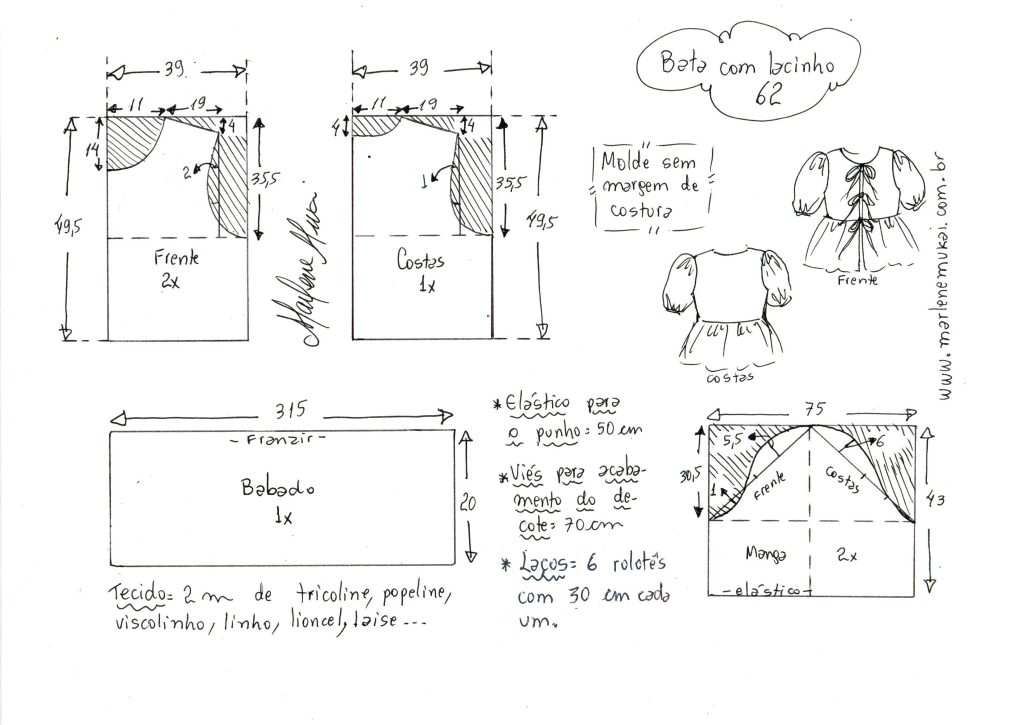 Bata com lacinho
62
Molde sem
margem de
costura
39
11
19
4
14
2
35,5
49,5
Frente
2x
39
11
19
4
4
1
35,5
49,5
Costas
1x
Frente
costas
www.marlenemukai.com.br
315
- Franzir -
Babado
1x
20
Tecido= 2 m de tricoline, popeline,
viscolinho, linho, lioncel, laise ...
* Elástico para
o punho = 50 cm
* Viés para acaba-
mento do de-
cote = 70 cm
* Laços = 6 rolotês
com 30 cm cada
um.
75
5,5
6
30,5
1
Frente
Costas
43
Manga 2x
- elástico -